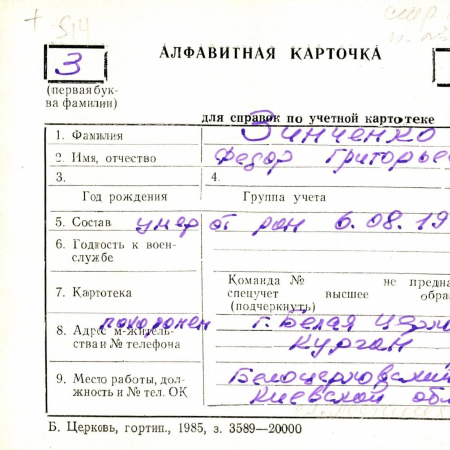 + 514
З
АЛФАВИТНАЯ КАРТОЧКА
(первая бук-
ва фамилии)
для справок по учетной картотеке
1. Фамилия Зинченко
2. Имя, отчество Федор Григорье
3. 4.
Год рождения Группа учета
5. Состав умер от ран 6.08.19
6. Годность к воен-
службе
Команда № не предна
7. Картотека спецучет высшее обра
(подчеркнуть)
похоронен г. Белая Церк
8. Адрес м-житель-
ства и № телефона Курган
9. Место работы, дол- Белоцерковский
жность и № тел. ОК Киевской обл
Б. Церковь, гортип., 1985, з. 3589—20000